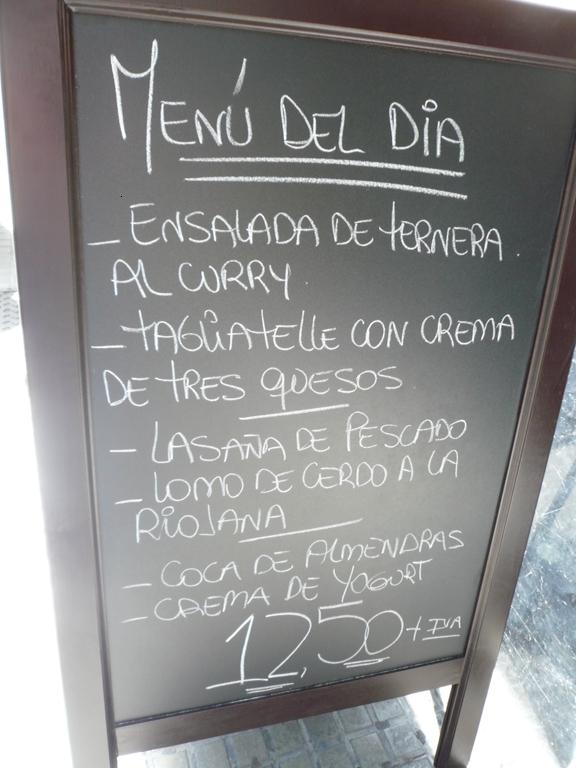 MENÚ DEL DIA
- ENSALADA DE TERNERA
AL CURRY.
- TAGLIATELLE CON CREMA
DE TRES QUESOS
- LASAÑA DE PESCADO
- LOMO DE CERDO A LA
RIOJANA
- COCA DE ALMENDRAS
- CREMA DE YOGURT
12,50 + IVA